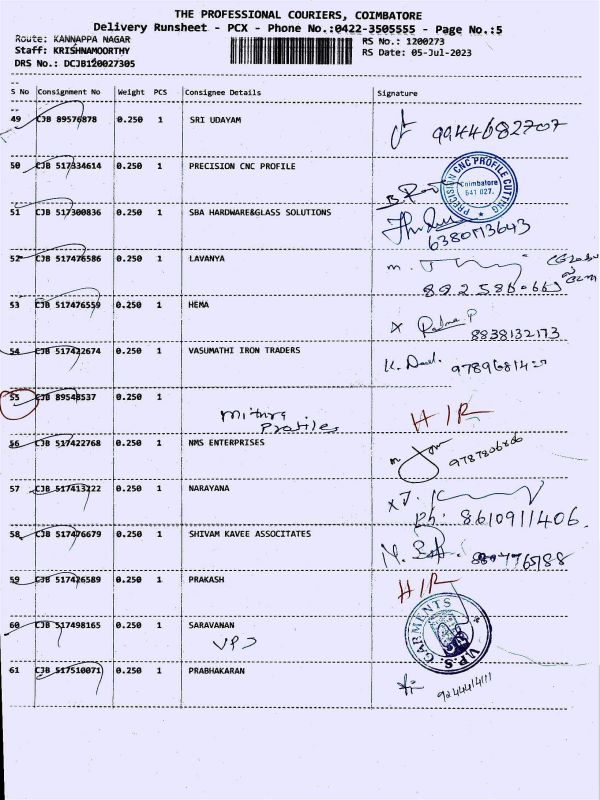 THE PROFESSIONAL COURIERS, COIMBATORE
Delivery Runsheet - PCX - Phone No.:0422-3505555 - Page No.:5
Route: KANNAPPA NAGAR
RS No.: 1200273
Staff: KRISHNAMOORTHY
RS Date: 05-Jul-2023
DRS No.: DCJB120027305
S No Consignment No Weight PCS Consignee Details Signature
49 CJB 89576878 0.250 1 SRI UDAYAM 9944682707
50 CJB 517334614 0.250 1 PRECISION CNC PROFILE
PRECISION CNC PROFILE CUTING
Coimbatore
641 027.
51 CJB 517300836 0.250 1 SBA HARDWARE&GLASS SOLUTIONS
6380173643
52 CJB 517476586 0.250 1 LAVANYA
53 CJB 517476559 0.250 1 HEMA
x Padma P
8838132173
54 CJB 517422674 0.250 1 VASUMATHI IRON TRADERS
55 CJB 89548537 0.250 1
Mithra
Profiles
H/R
56 CJB 517422768 0.250 1 NMS ENTERPRISES
57 CJB 517413222 0.250 1 NARAYANA
Ph: 8610911406
58 CJB 517476679 0.250 1 SHIVAM KAVEE ASSOCITATES
59 CJB 517426589 0.250 1 PRAKASH H/R
60 CJB 517498165 0.250 1 SARAVANAN
VPS
V.P.S. GARMENTS
61 CJB 517510071 0.250 1 PRABHAKARAN